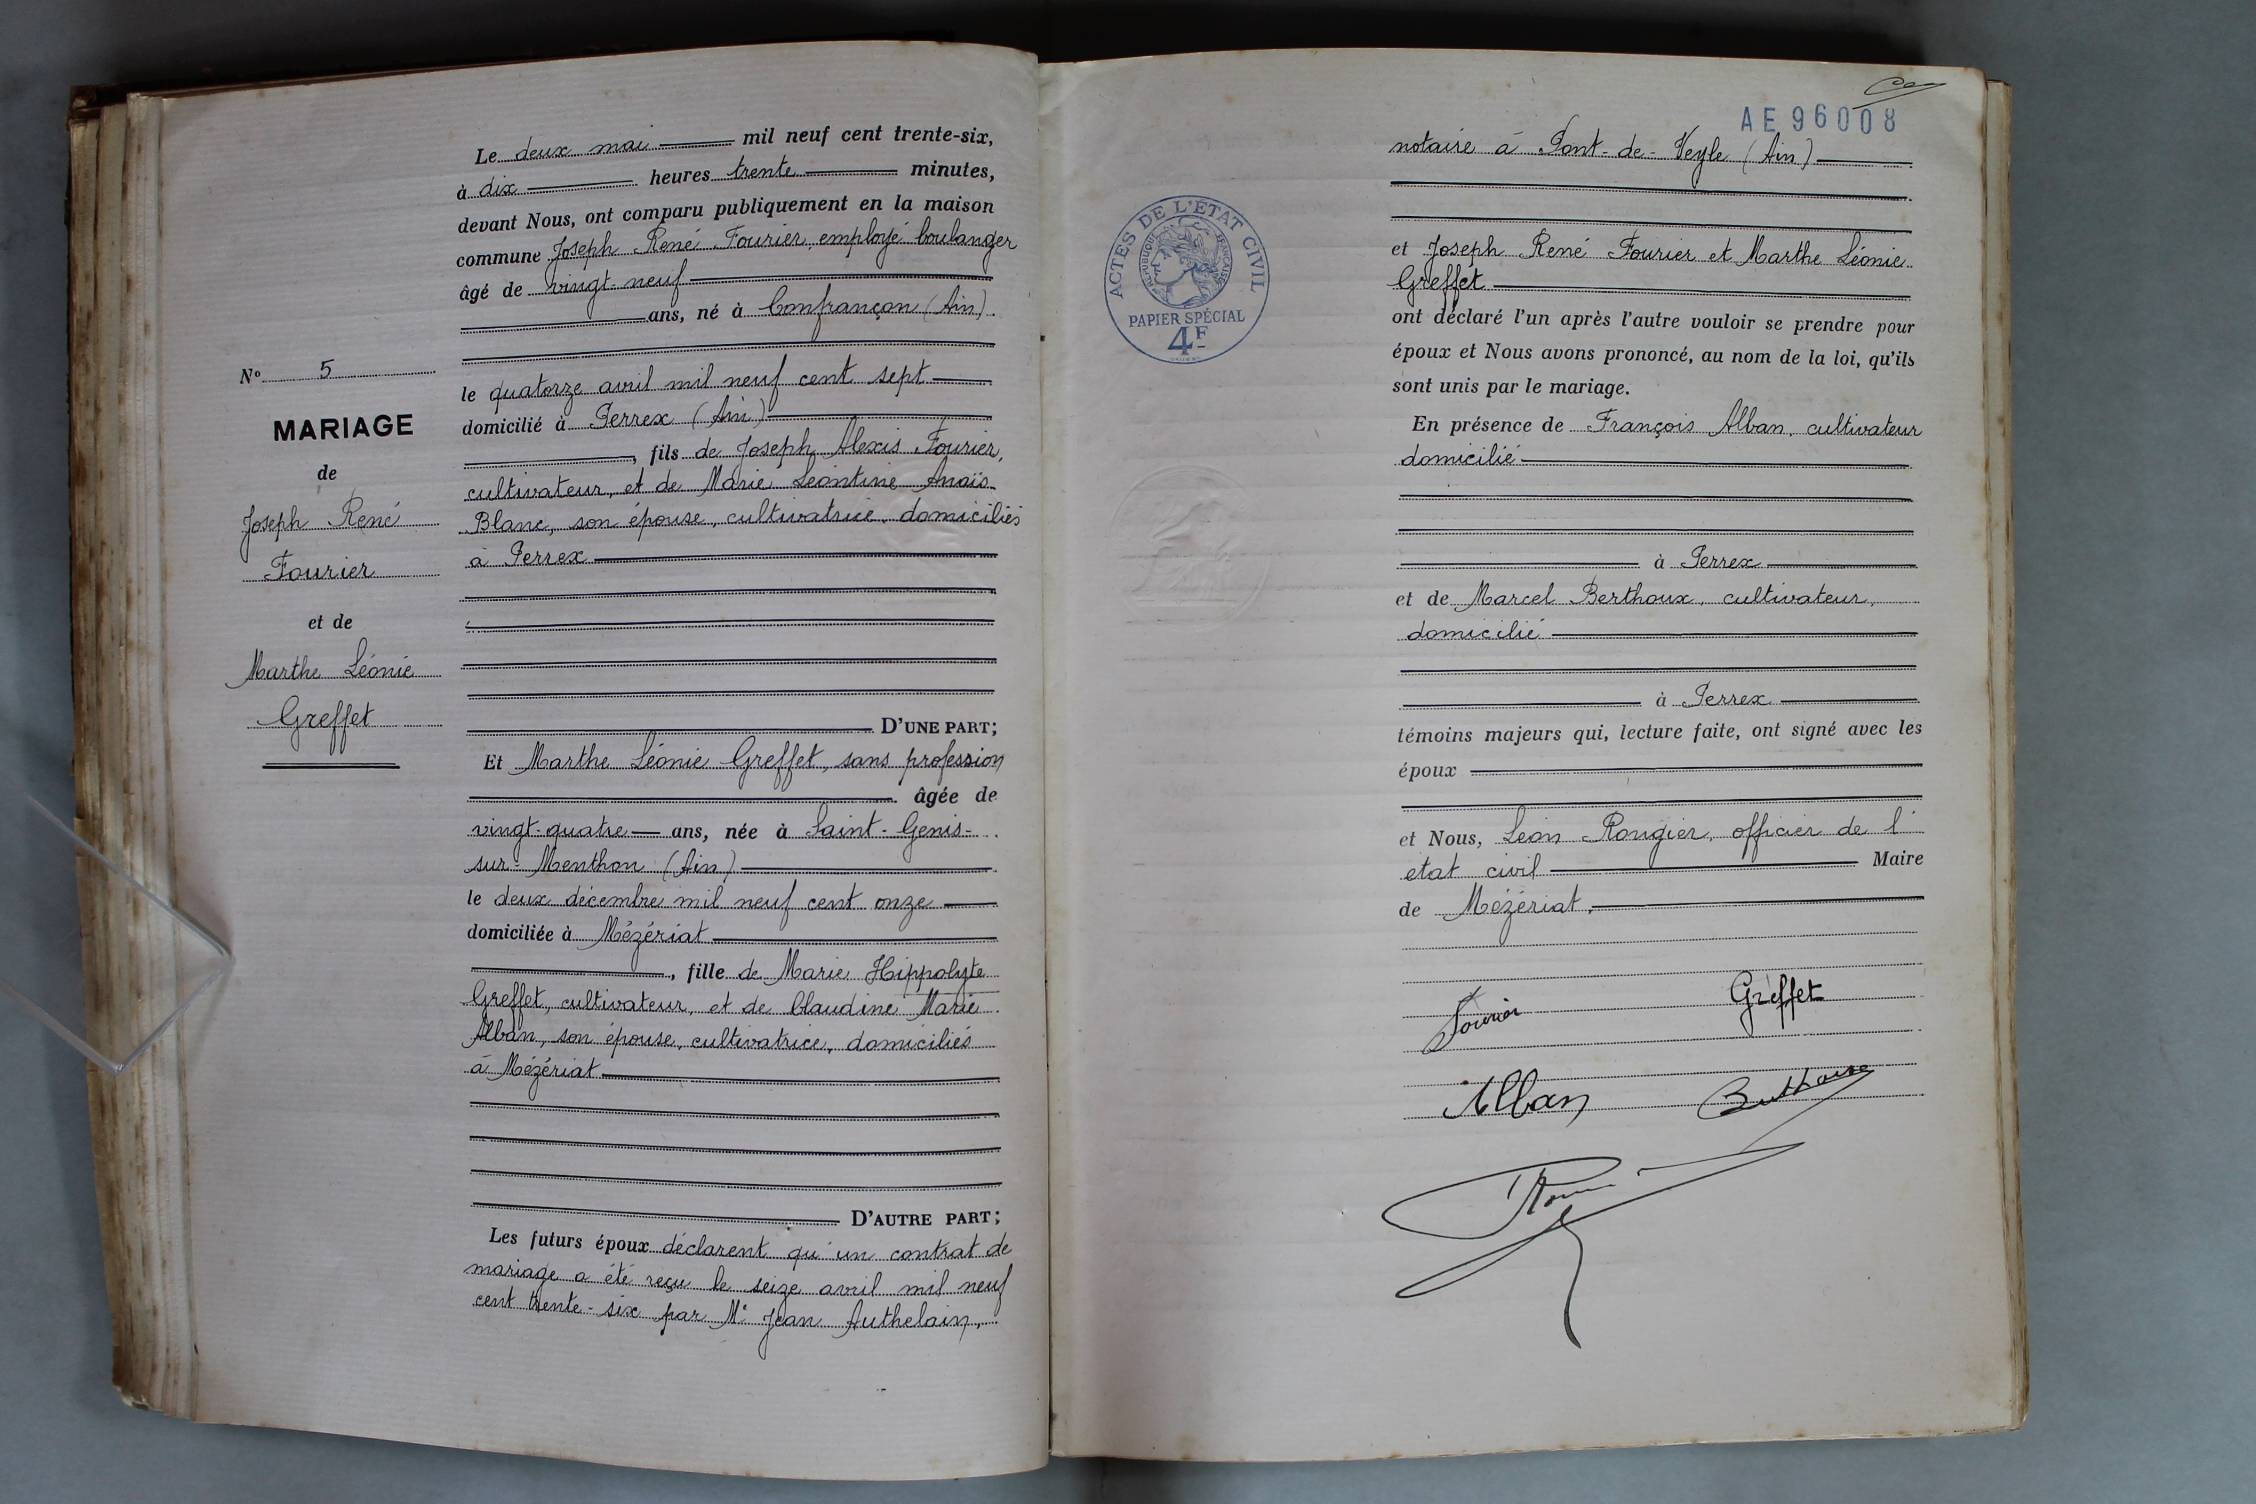 Le deux mai mil neuf cent trente-six,
à dix heures trente minutes,
devant Nous, ont comparu publiquement en la maison
commune Joseph René Fourier, employé boulanger
âgé de vingt-neuf
ans, né à Confrançon (Ain).
le quatorze avril mil neuf cent sept
domicilié à Perrex (Ain)
, fils de Joseph Alexis Fourier,
cultivateur, et de Marie Léontine Anaïs
Blanc, son épouse, cultivatrice, domiciliés
à Perrex
D'UNE PART;
Et Marthe Léonie Greffet, sans profession
âgée de
vingt-quatre ans, née à Saint-Genis-
sur-Menthon (Ain)
le deux décembre mil neuf cent onze
domiciliée à Mézériat
, fille de Marie Hippolyte
Greffet, cultivateur, et de Claudine Marie
Alban, son épouse, cultivatrice, domiciliés
à Mézériat
D'AUTRE PART;
Les futurs époux déclarent qu'un contrat de
mariage a été reçu le seize avril mil neuf
cent trente-six par Me Jean Authelain,
No 5
MARIAGE
de
Joseph René
Fourier
et de
Marthe Léonie
Greffet
AE 96008
ACTES DE L'ETAT CIVIL
REPUBLIQUE FRANÇAISE
PAPIER SPÉCIAL
4F
notaire à Pont-de-Veyle (Ain)
et Joseph René Fourier et Marthe Léonie
Greffet
ont déclaré l'un après l'autre vouloir se prendre pour
époux et Nous avons prononcé, au nom de la loi, qu'ils
sont unis par le mariage.
En présence de François Alban, cultivateur
domicilié
à Perrex
et de Marcel Berthoux, cultivateur,
domicilié
à Perrex
témoins majeurs qui, lecture faite, ont signé avec les
époux
et Nous, Léon Rougier, officier de l'
etat civil Maire
de Mézériat.
Fourier
Greffet
Alban